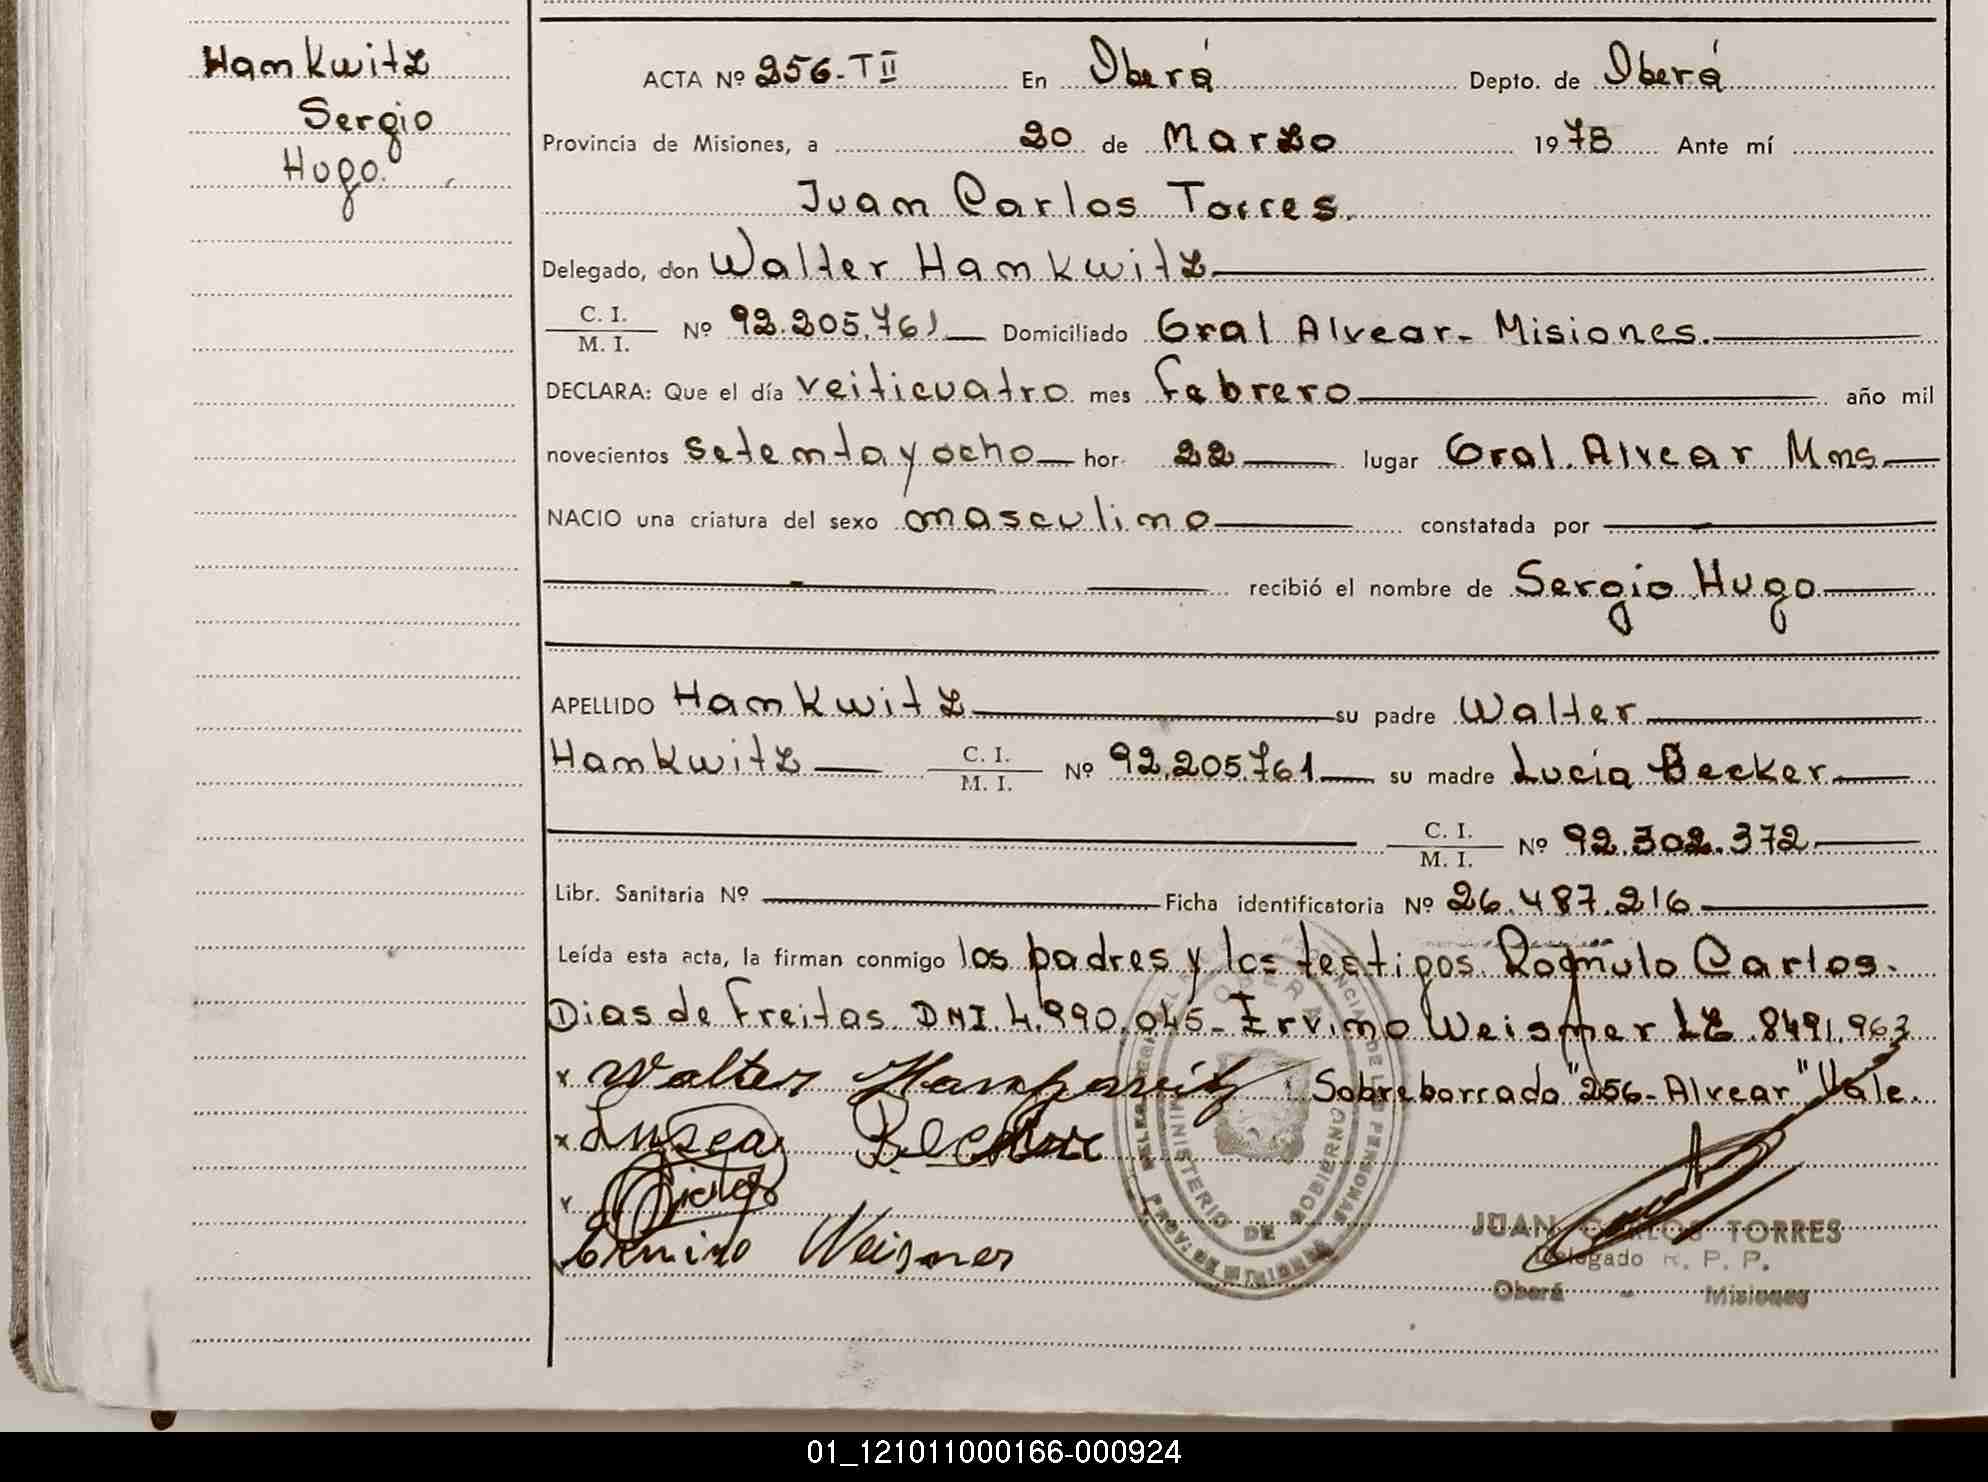 Hamkwitz
Sergio
Hugo.
ACTA Nº 256-TII En Oberá Depto. de Oberá
Provincia de Misiones, a 20 de Marzo 1978 Ante mí
Juan Carlos Torres.
Delegado, don Walter Hamkwitz
C. I.
M. I. Nº 92.205.761 Domiciliado Gral Alvear- Misiones.
DECLARA: Que el día veiticuatro mes Febrero año mil
novecientos setenta y ocho hor. 22 lugar Gral. Alvear Mns
NACIO una criatura del sexo masculino constatada por
recibió el nombre de Sergio Hugo
APELLIDO Hamkwitz su padre Walter
Hamkwitz C. I.
M. I. Nº 92.205761 su madre Lucía Becker
C. I.
M. I. Nº 92.302.372
Libr. Sanitaria Nº Ficha identificatoria Nº 26.487.216
Leída esta acta, la firman conmigo los padres y los testigos Romulo Carlos
Dias de Freitas DNI.4.990.045- Ervino Weisner LE.8491.963
x Walter Sobreborrado "256-Alvear" Vale.
x Becker
Weisner
MINISTERIO DE GOBIERNO
PROV. DE MISIONES
OBERA
JUAN CARLOS TORRES
Delegado R. P. P.
Oberá - Misiones
01_121011000166-000924